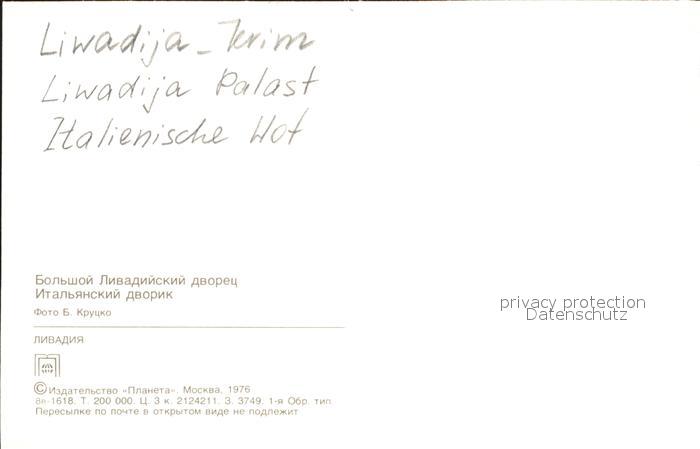 Liwadija - Krim
Liwadija Palast
Italienische Hof
Большой Ливадийский дворец
Итальянский дворик
Фото Б. Круцко
ЛИВАДИЯ
privacy protection
Datenschutz
© Издательство «Планета». Москва, 1976
8в-1618. Т. 200 000. Ц. 3 к. 2124211. З. 3749. 1-я Обр. тип.
Пересылке по почте в открытом виде не подлежит